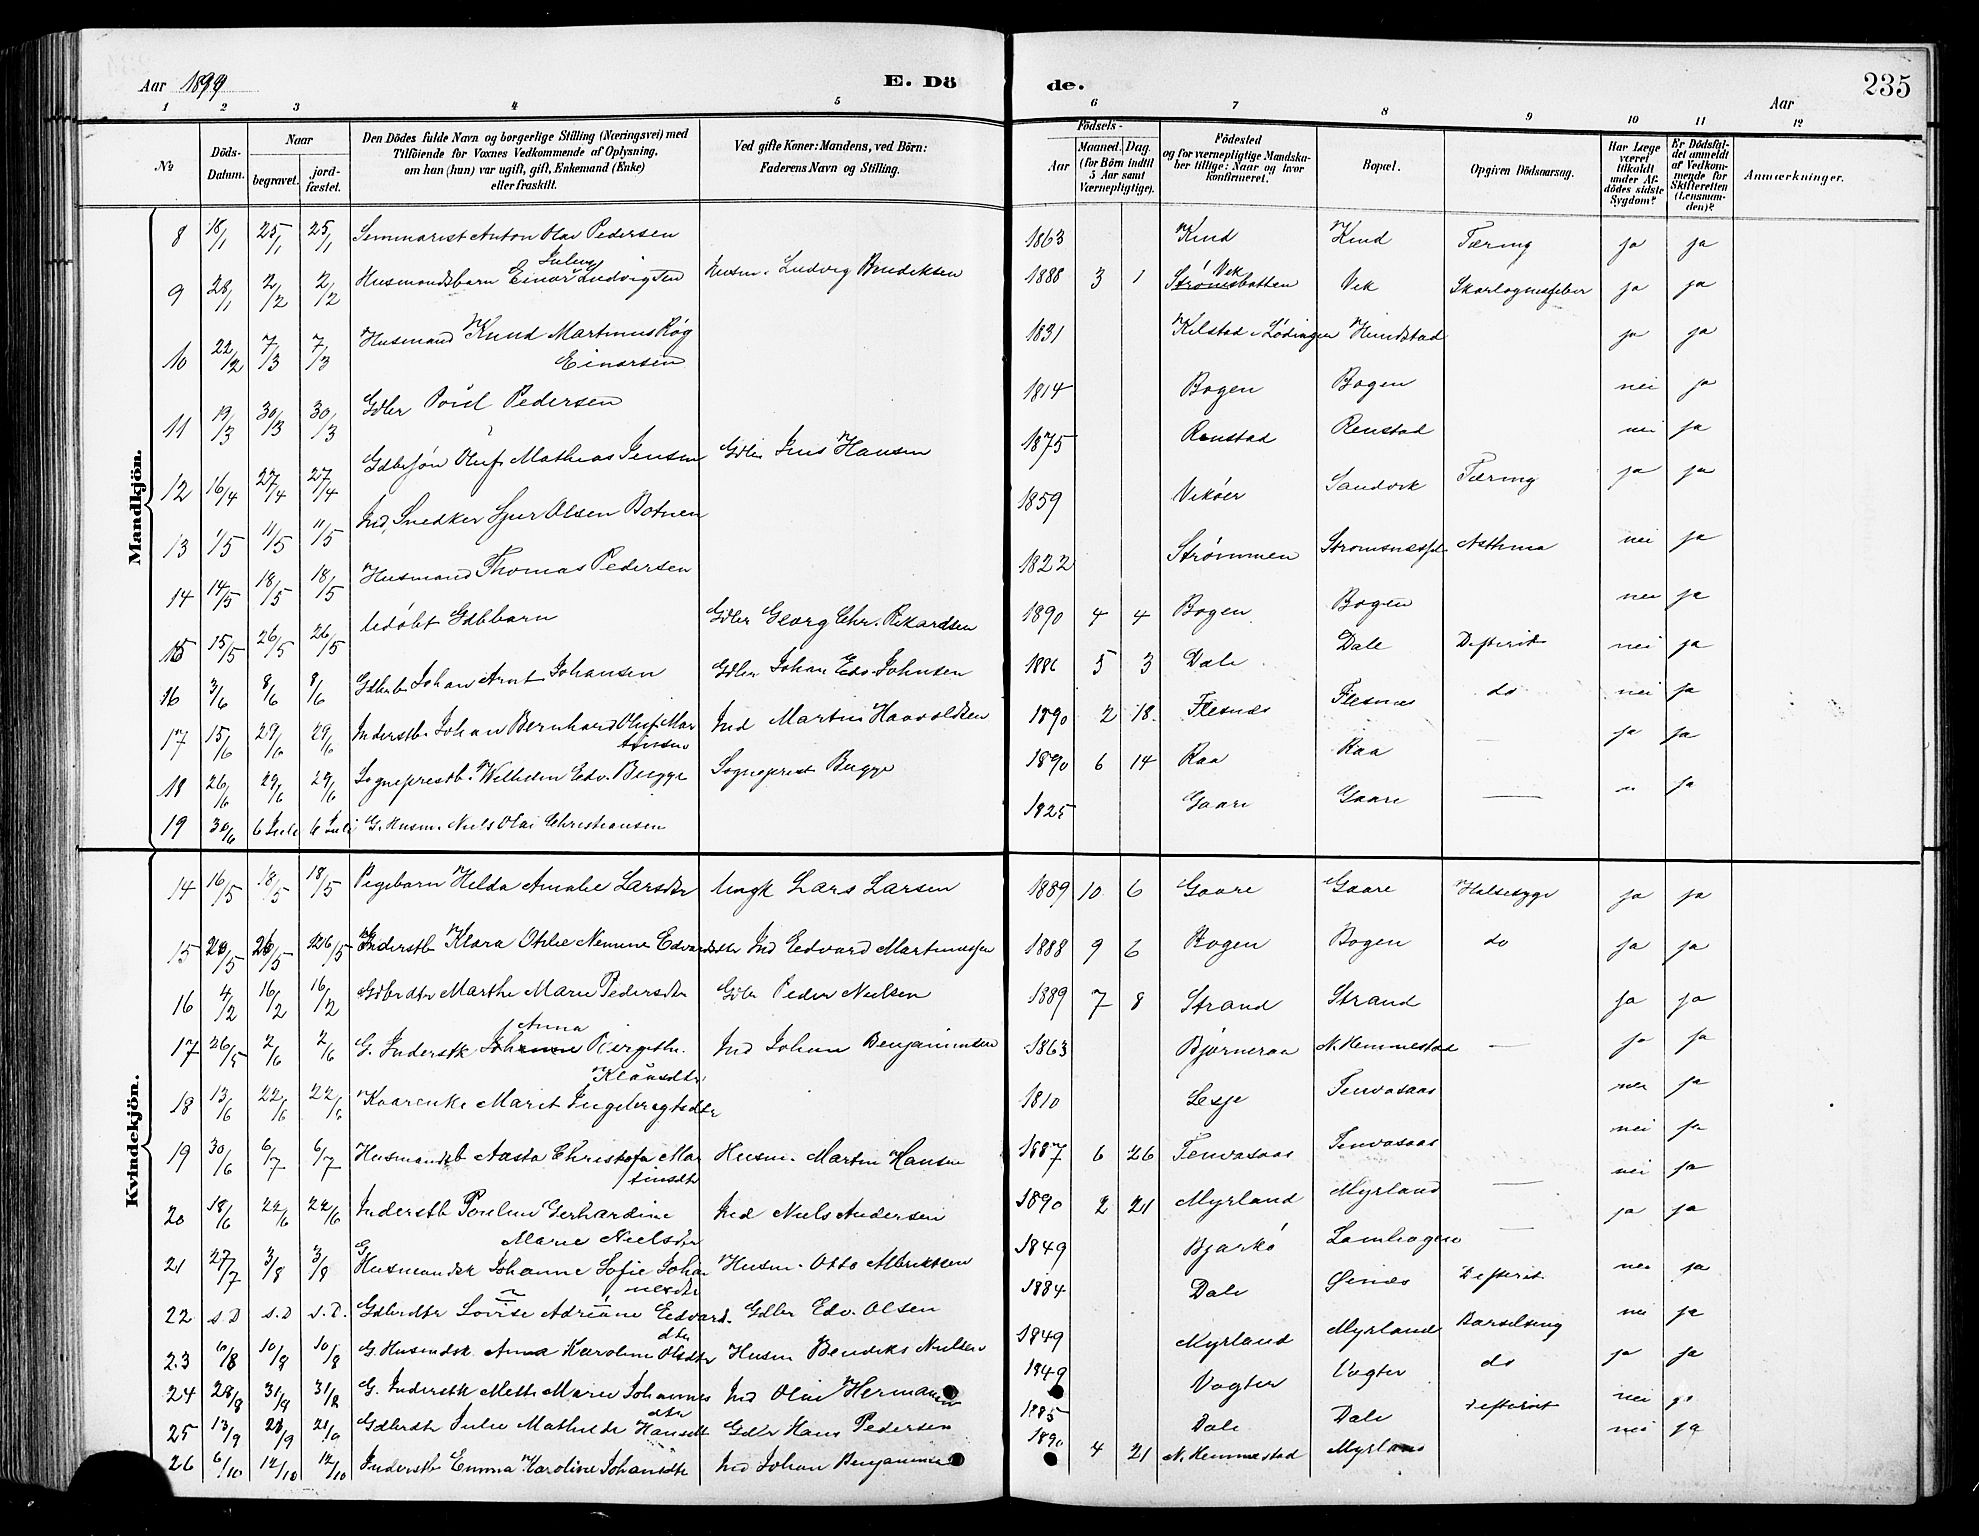 Aar 1890 E. Dö de. Aar 235
1 2 3 4 5 6 7 8 9 10 11 12
No Döds-Datum. Naar begravet. jordfæstet. Den Dödes fulde Navn og borgerlige Stilling (Næringsvei) med Tilföiende for Voxnes Vedkommende af Oplysning, om han (hun) var ugift, gift, Enkemand (Enke) eller fraskilt. Ved gifte Koner: Mandens, ved Börn: Faderens Navn og Stilling. Födsels- Aar Maaned. Dag. (for Börn indtil 5 Aar samt Værnepligtige). Födested og for værnepligtige Mandskaber tillige: Naar og hvor konfirmeret. Bopæl. Opgiven Dödsaarsag. Har Læge været tilkaldt under Afdödes sidste Sygdom? Er Dödsfaldet anmeldt af Vedkommende for Skifteretten (Lensmanden)? Anmærkninger.
Mandkjön.
8 18/1 25/1 25/1 Seminarist Anton Olai Pedersen 1863 Kind Kind Tæring ja ja
9 28/1 2/2 2/2 Husmandsbarn Einar Julius Ludvigsen Husm. Ludvig Bendiksen 1888 3 1 Strømsbotten Vek Vek Skarlagensfeber ja ja
10 22/2 7/3 7/3 Husmand Knud Martinus Røg Einarsen 1831 Kilstad i Lødingen Hundstad ja ja
11 19/3 30/3 30/3 Gdbr Poul Pedersen 1814 Bogen Bogen nei ja
12 16/4 27/4 27/4 Gdbrsøn Oluf Mathias Jensen Gdbr Jens Hansen 1875 Renstad Renstad nei ja
13 1/5 11/5 11/5 Ind. Snedker Sjur Olsen Botnen 1859 Vikøer Sandvik Tæring ja ja
14 14/5 18/5 18/5 Husmand Thomas Pedersen 1822 Strømmen Strømsnesset Asthma nei ja
15 15/5 26/5 26/5 Udøbt Gdbbarn Gdbr Georg Chr. Rikardsen 1890 4 4 Bogen Bogen nei ja
16 3/6 8/6 8/6 Gdbrb Johan Arnt Johansen Gdbr Johan Edv. Johnsen 1886 5 3 Dale Dale Defterit nei ja
17 15/6 29/6 29/6 Inderstb. Johan Bernhard Oluf Martinsen Ind Martin Haavoldsen 1890 2 18. Flesnes Flesnes do nei ja
18 26/6 29/6 29/6 Sogneprestb. Wilhelm Edv. Bugge Sogneprest Bugge 1890 6 14 Raa Raa — ja ja
19 30/6 6 Juli 6 Juli G. Husm. Niels Olai Christiansen 1825 Gaare Gaare — n ja
Kvindekjön.
14 16/5 18/5 18/5 Pigebarn Hilda Amalie Larsdtr Ungk Lars Larsen 1889 10 6 Gaare Gaare Halsesyge ja ja
15 20/5 26/5 26/5 Inderstb Klara Otilie Nemine Edvardsdtr Ind Edvard Martinussen 1888 9 6 Bogen Bogen do ja ja
16 4/2 16/2 16/2 Gdbrdtr Marthe Marie Pedersdtr Gdbr Peder Nielsen 1889 7 8 Strand Strand ja ja
17 26/5 2/6 2/6 G. Inderstk Johanne Anna Birgithe Klausdtr Ind Johan Benjaminsen 1863 Bjørneraa N. Hemmestad — ja ja
18 13/6 22/6 22/6 Kaarenke Marit Ingebrigtsdtr 1810 Lesje Tenvasaas nei ja
19 30/6 6/7 6/7 Husmandsb Aasta Christofa Martinsdtr Husm. Martin Hansen 1887 6 26 Tenvasaas Tenvasaas nei ja
20 18/6 22/6 22/6 Inderstb Pouline Gerhardine Marie Nielsdtr Ind Niels Andersen 1890 2 21 Myrland Myrland — nei ja
21 27/7 3/8 3/8 G. Husmandsk Johanne Sofie Johannesdtr Husm. Otto Albriktsen 1849 Bjarkö — ja ja
22 s.D s.D s.D. Gdbrdtr Lovise Adriane Edvardsdtr Gdbr Edv. Olsen 1884 Dale Øines Defterit nei ja
23 6/8 10/8 10/8 G. Husmdsk Anna Karoline Olsdtr Husm Bendiks Nielsen 1849 Myrland Myrland Barselseng nei ja
24 28/8 31/8 31/8 G. Inderstk Mette Marie Johannesdtr Ind Olai Hermansen 1849 Vogter Vogter do ja ja
25 13/9 21/9 21/9 Gdbrdtr Julie Mathilde Hansdtr Gdbr Hans Pedersen 1885 Dale Dale Defterit nei ja
26 6/10 12/10 12/10 Inderstb Emma Karoline Johansdtr Ind Johan Benjaminsen 1890 4 21 N. Hemmestad Myrland nei ja